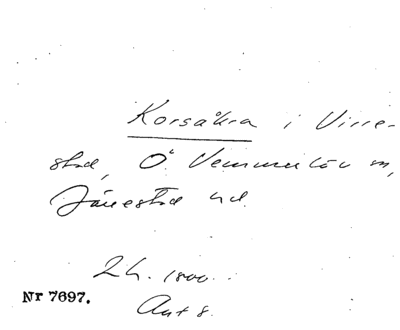 Korsåkra i Virre-
stad, Ö. Vemmerlöv sn,
Järrestad hd.
2 h. 1800.
Nr 7697.
Ant 8.